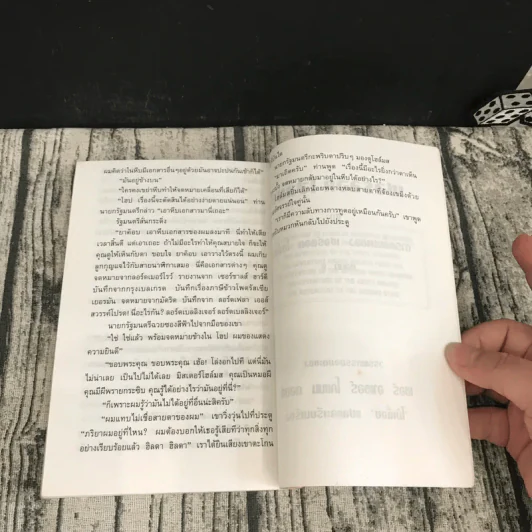 ผมคิดว่าในหีบมีเอกสารอื่นๆอยู่ด้วยมันอาจปะปนกันเข้าก็ได้"
"มันอยู่ข้างบน"
"ใครคงเขย่าหีบ ทำให้จดหมายเคลื่อนที่เสียก็ได้"
"โฮป เรื่องนี้จะตัดสินได้อย่างง่ายดายแน่นอน" ท่าน
นายกรัฐมนตรีกล่าว "เอาหีบเอกสารมานี่เถอะ"
รัฐมนตรีสั่นกระดิ่ง
"ยาค๊อบ เอาหีบเอกสารของผมลงมาที นี่ทำให้เสีย
เวลาสิ้นดี แต่เอาเถอะ ถ้าไม่มีอะไรทำให้คุณสบายใจ ก็จะให้
คุณดูให้เห็นกับตา ขอบใจ ยาค๊อบ เอาวางไว้ตรงนี้ ผมเก็บ
ลูกกุญแจไว้กับสายนาฬิกาเสมอ นี่คือเอกสารต่างๆ คุณดู
จดหมายจากลอร์ดเมอร์โรว์ รายงานจาก เซอร์ชาลส์ ฮาร์ดี
บันทึกจากกรุงเบลเกรด บันทึกเรื่องภาษีข้าวโพดรัสเซีย
เยอรมัน จดหมายจากมัดริด บันทึกจาก ลอร์ดเฟลา เออส์
สวรรค์โปรด! นี่อะไรกัน? ลอร์ดเบลลิงเจอร์ ลอร์ดเบลลิงเจอร์"
นายกรัฐมนตรีฉวยซองสีฟ้าไปจากมือของเขา
"ใช่ ใช่แล้ว พร้อมจดหมายข้างใน โฮป ผมของแสดง
ความยินดี"
"ขอบพระคุณ ขอบพระคุณ เฮ้อ! โล่งอกไปที แต่นี่มัน
ไม่น่าเลย เป็นไปไม่ได้เลย มิสเตอร์โฮล์มส คุณเป็นหมอผี
คุณมีผีพรายกระซิบ คุณรู้ได้อย่างไรว่ามันอยู่ที่นี่?"
"ก็เพราะผมรู้ว่ามันไม่ได้อยู่ที่อื่นน่ะสิครับ"
"ผมแทบไม่เชื่อสายตาของผม" เขาวิ่งวุ่นไปที่ประตู
"ภริยาผมอยู่ที่ไหน? ผมต้องบอกให้เธอรู้เสียทีว่าทุกสิ่งทุก
อย่างเรียบร้อยแล้ว ฮิลดา ฮิลดา" เราได้ยินเสียงเขาตะโกน
นายกรัฐมนตรีกะพริบตาปริบๆ มองดูโฮล์มส
"เอาเถิดครับ" ท่านพูด "เรื่องนี้มีอะไรยิ่งกว่าตาเห็น
จดหมายกลับมาอยู่ในหีบได้อย่างไร?"
โฮล์มสยิ้มเล็กน้อยพลางหลบสายตาที่จ้องเขม็งด้วย
"เราก็มีความลับทางการทูตอยู่เหมือนกันครับ" เขาพูด
หมวกหันกลับไปยังประตู